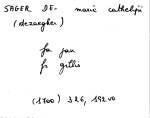 SAGER DE- marie cathelijn
(dezaegher)
fa jan
fs gillis
(1700) 326, 192v0